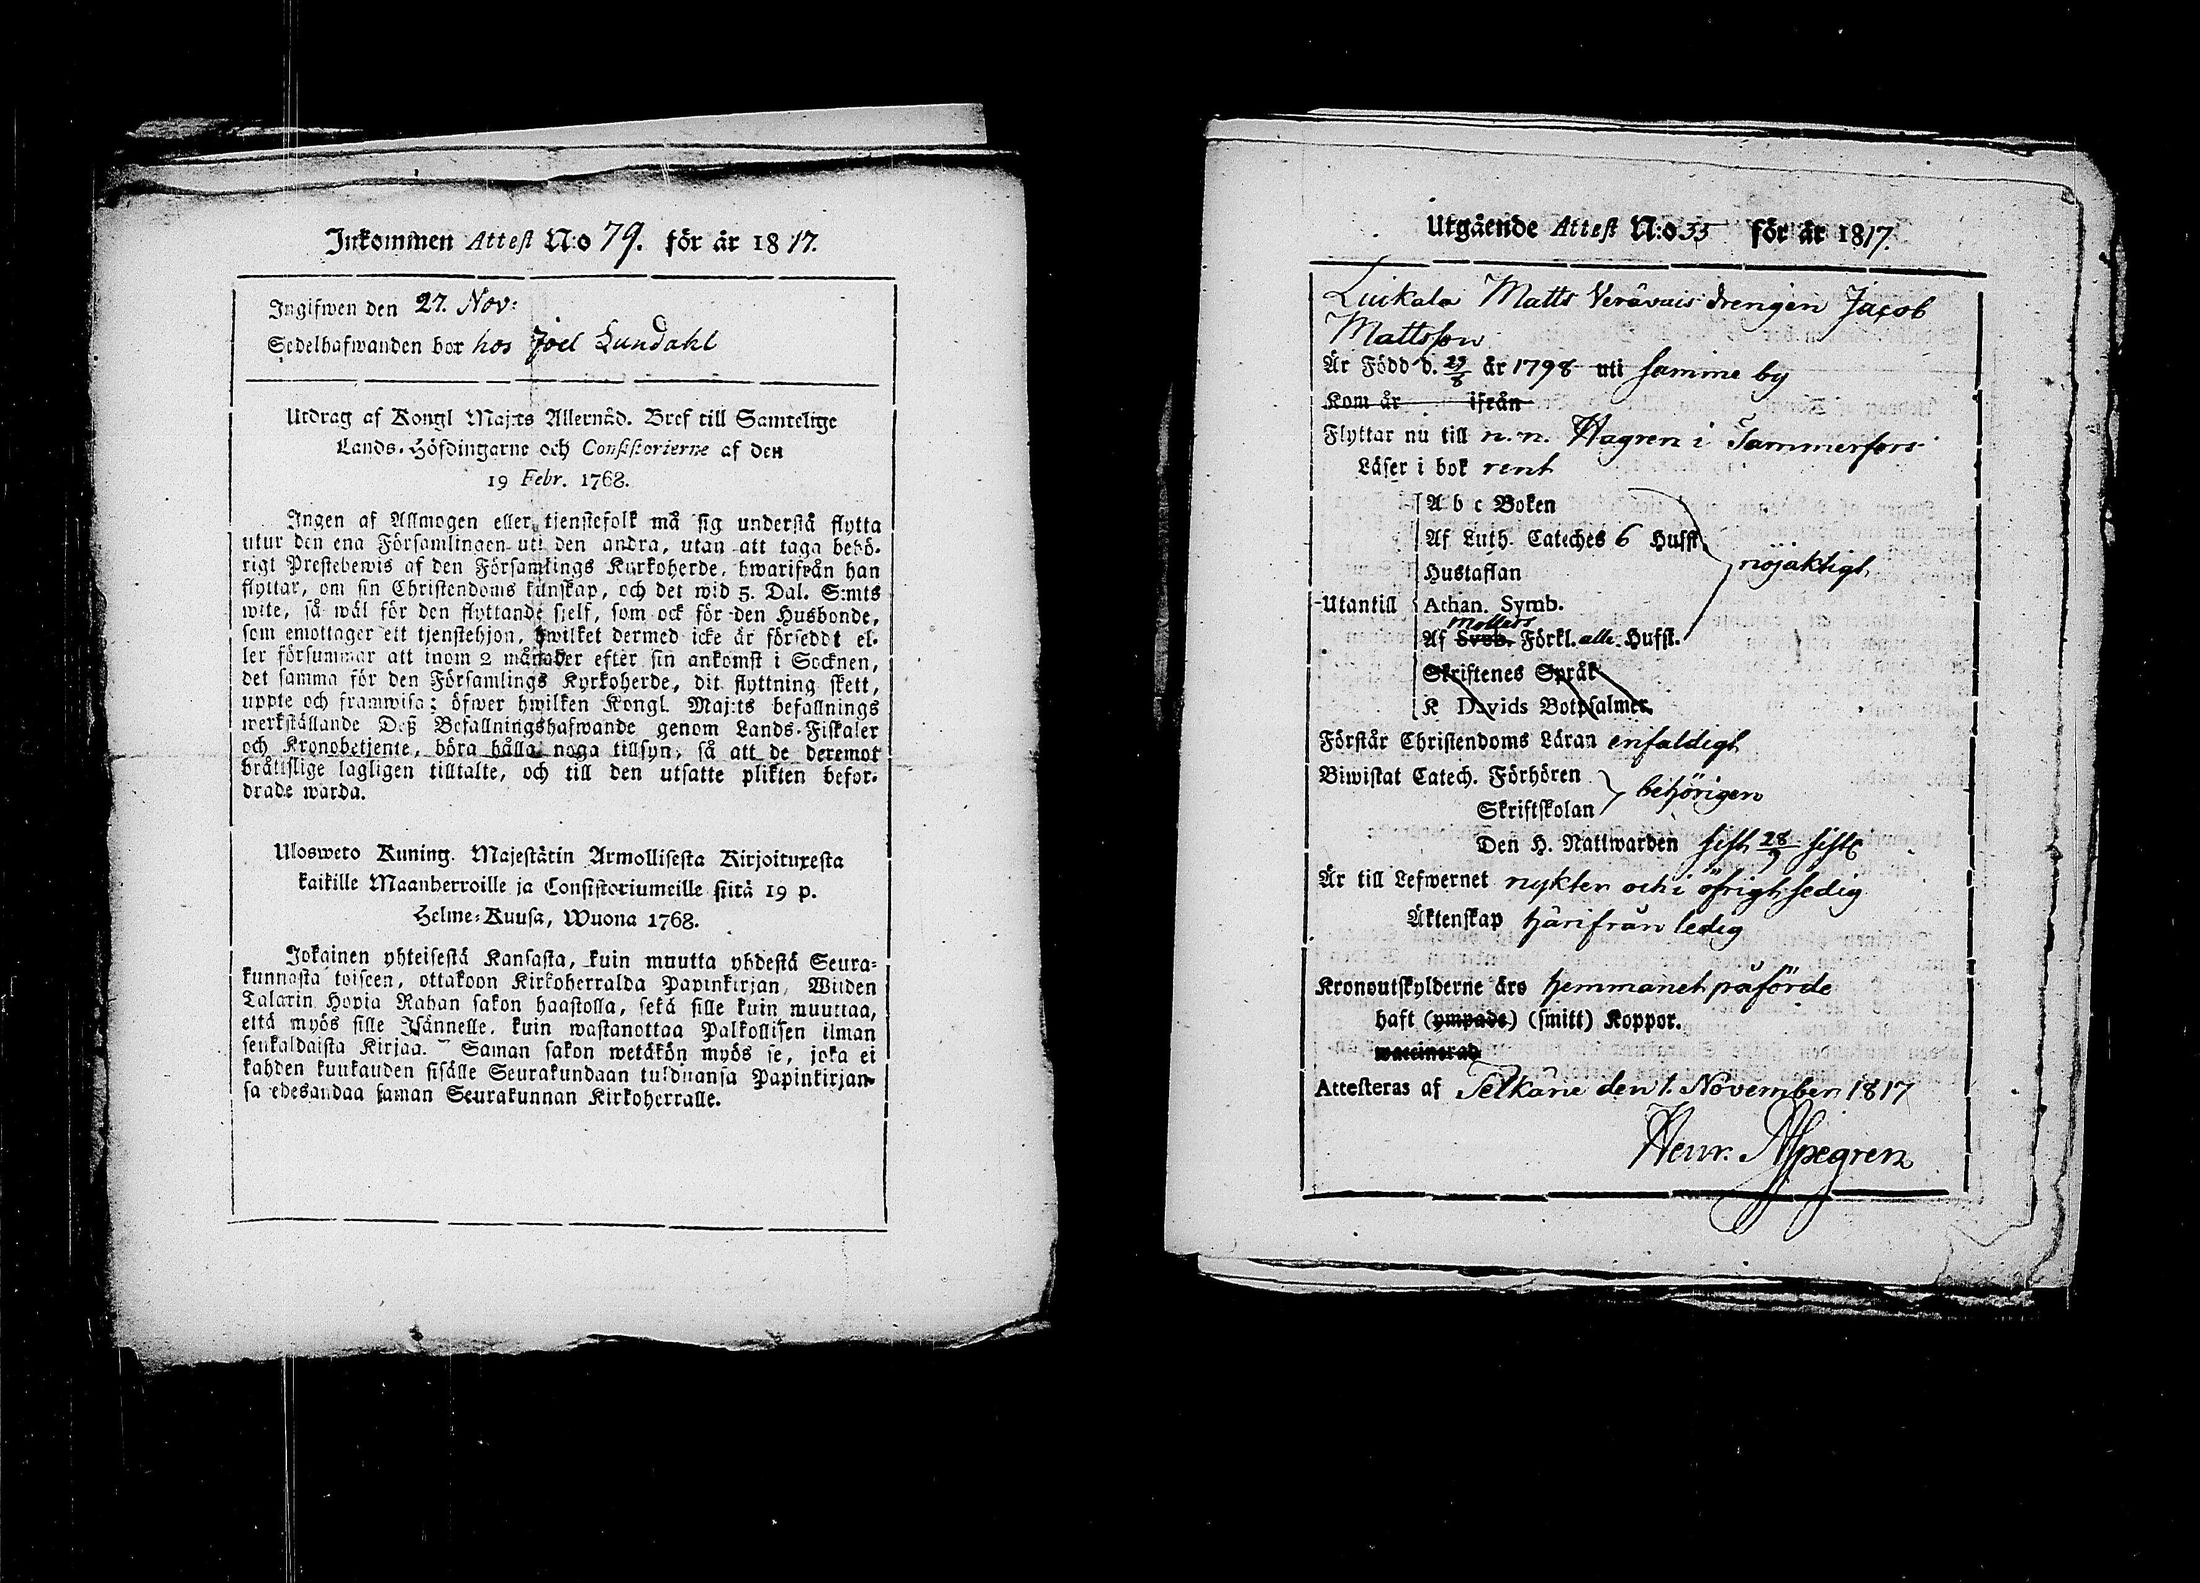 Inkommen Attest N:o 79. för år 1817.
Ingifwen den 27. Nov:
Sedelhafwanden bor hos Joel Lundahl
Utdrag af Kongl Maj:ts Allernåd. Bref till Samtelige
Lands-Höfdingarne och Consistorierne af den
19 Febr. 1768.
Ingen af Allmogen eller tjenstefolk må sig understå flytta
utur den ena Församlingen uti den andra, utan att taga behö-
rigt Prestebewis af den Församlings Kyrkoherde, hwarifrån han
flyttar, om sin Christendoms kunskap, och det wid 5. Dal. S:mts
wite, så wäl för den flyttande sjelf, som ock för den Husbonde,
som emottager ett tjenstehjon, hwilket dermed icke är försedt el-
ler försummar att inom 2 månader efter sin ankomst i Socknen,
det samma för den Församlings Kyrkoherde, dit flyttning skett,
uppte och framwisa; öfwer hwilken Kongl. Maj:ts befallnings
werkställande Deß Befallningshafwande genom Lands-Fiskaler
och Kronobetjente, böra hålla noga tillsyn, så att de deremot
bråttslige lagligen tilltalte, och till den utsatte plikten befor-
drade warda.
Ulosweto Kuning. Majestätin Armollisesta Kirjoituxesta
kaikille Maanherroille ja Consistoriumeille siitä 19 p.
Helme-Kuusa, Wuona 1768.
Jokainen yhteisestä Kansasta, kuin muutta yhdestä Seura-
kunnasta toiseen, ottakoon Kirkoherralda Papinkirjan, Wiiden
Talarin Hopia Rahan sakon haastolla, sekä sille kuin muuttaa,
että myös sille Isännelle, kuin wastanottaa Palkollisen ilman
senkaldaista Kirjaa. Saman sakon wetäkön myös se, joka ei
kahden kuukauden sisälle Seurakundaan tulduansa Papinkirjan-
sa edesandaa saman Seurakunnan Kirkoherralle.
Utgående Attest N:o 33 för år 1817.
Luikala Matts Verävais drengen Jacob
Mattsson
Är Född d. 29/8 år 1798 uti samme by
Kom år ifrån
Flyttar nu till n.n. Hagren i Tammerfors
Läser i bok rent
A b c Boken
Af Luth. Cateches 6 Hufst.
Hustaflan
nöjaktigt
Utantill Athan. Symb.
Mollers
Af Sveb. Förkl. alla Hufst.
Skriftenes Språk
K Davids Botpsalmer.
Förstår Christendoms Läran enfaldigt
Biwistat Catech. Förhören
behörigen
Skriftskolan
Den H. Nattwarden sist 28/9 sistl
Är till Lefwernet nykter och i öfrigt sedig
Äktenskap härifrån ledig
Kronoutskylderne äro hemmanet påförde
haft (ympade) (smitt) Koppor.
waccinerad
Attesteras af Pelkäne den 1. November 1817
Henr. Aspegren